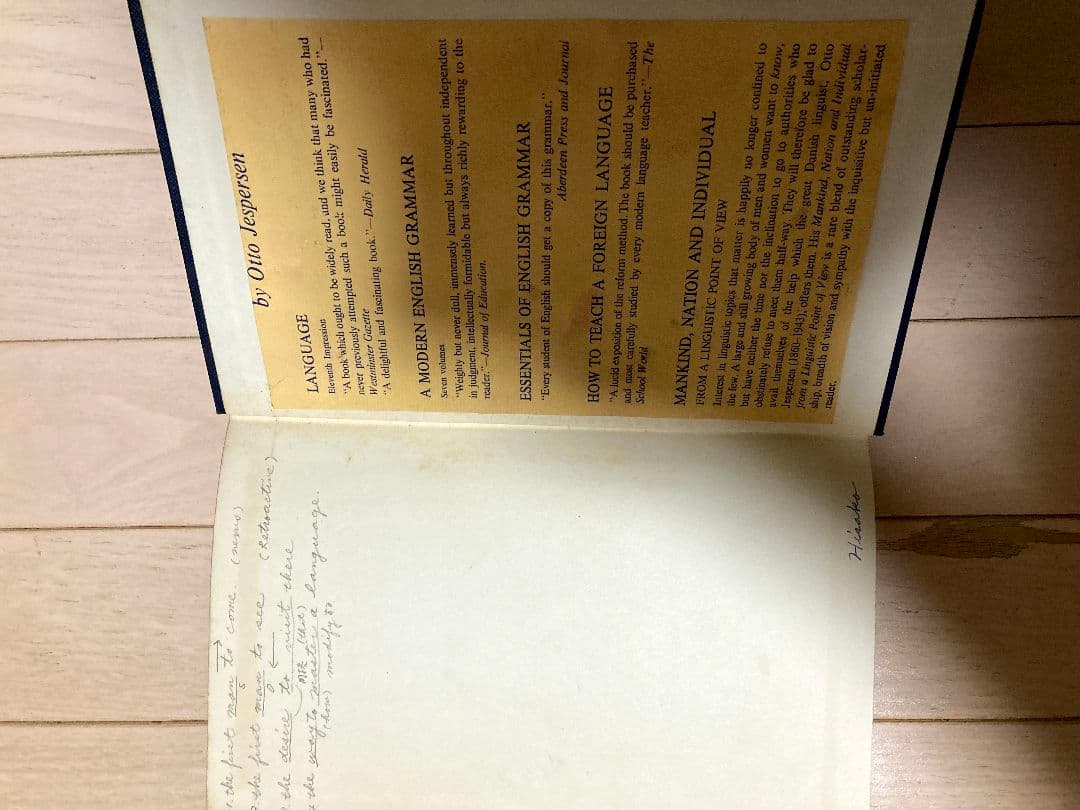 by Otto Jespersen
LANGUAGE
Eleventh Impression
"A book which ought to be widely read, and we think that many who had
never previously attempted such a book might easily be fascinated."—
Westminster Gazette
"A delightful and fascinating book."—Daily Herald
A MODERN ENGLISH GRAMMAR
Seven volumes
"Weighty but never dull, immensely learned but throughout independent
in judgment, intellectually formidable but always richly rewarding to the
reader."—Journal of Education.
ESSENTIALS OF ENGLISH GRAMMAR
"Every student of English should get a copy of this grammar."
Aberdeen Press and Journal
HOW TO TEACH A FOREIGN LANGUAGE
"A lucid exposition of the reform method. The book should be purchased
and most carefully studied by every modern language teacher."—The
School World
MANKIND, NATION AND INDIVIDUAL
FROM A LINGUISTIC POINT OF VIEW
Interest in linguistic topics that matter is happily no longer confined to
the few. A large and still growing body of men and women want to know,
but have neither the time nor the inclination to go to authorities who
obstinately refuse to meet them half-way. They will therefore be glad to
avail themselves of the help which the great Danish linguist, Otto
Jespersen (1860-1943), offers them. His Mankind, Nation and Individual
from a Linguistic Point of View is a rare blend of outstanding scholar-
ship, breadth of vision and sympathy with the inquisitive but un-initiated
reader.
1. the first man to come (nexus)
S
2. the first man to see (Retroactive)
O
the desire to visit there
the way to master a language.
(how) modify
Hisako